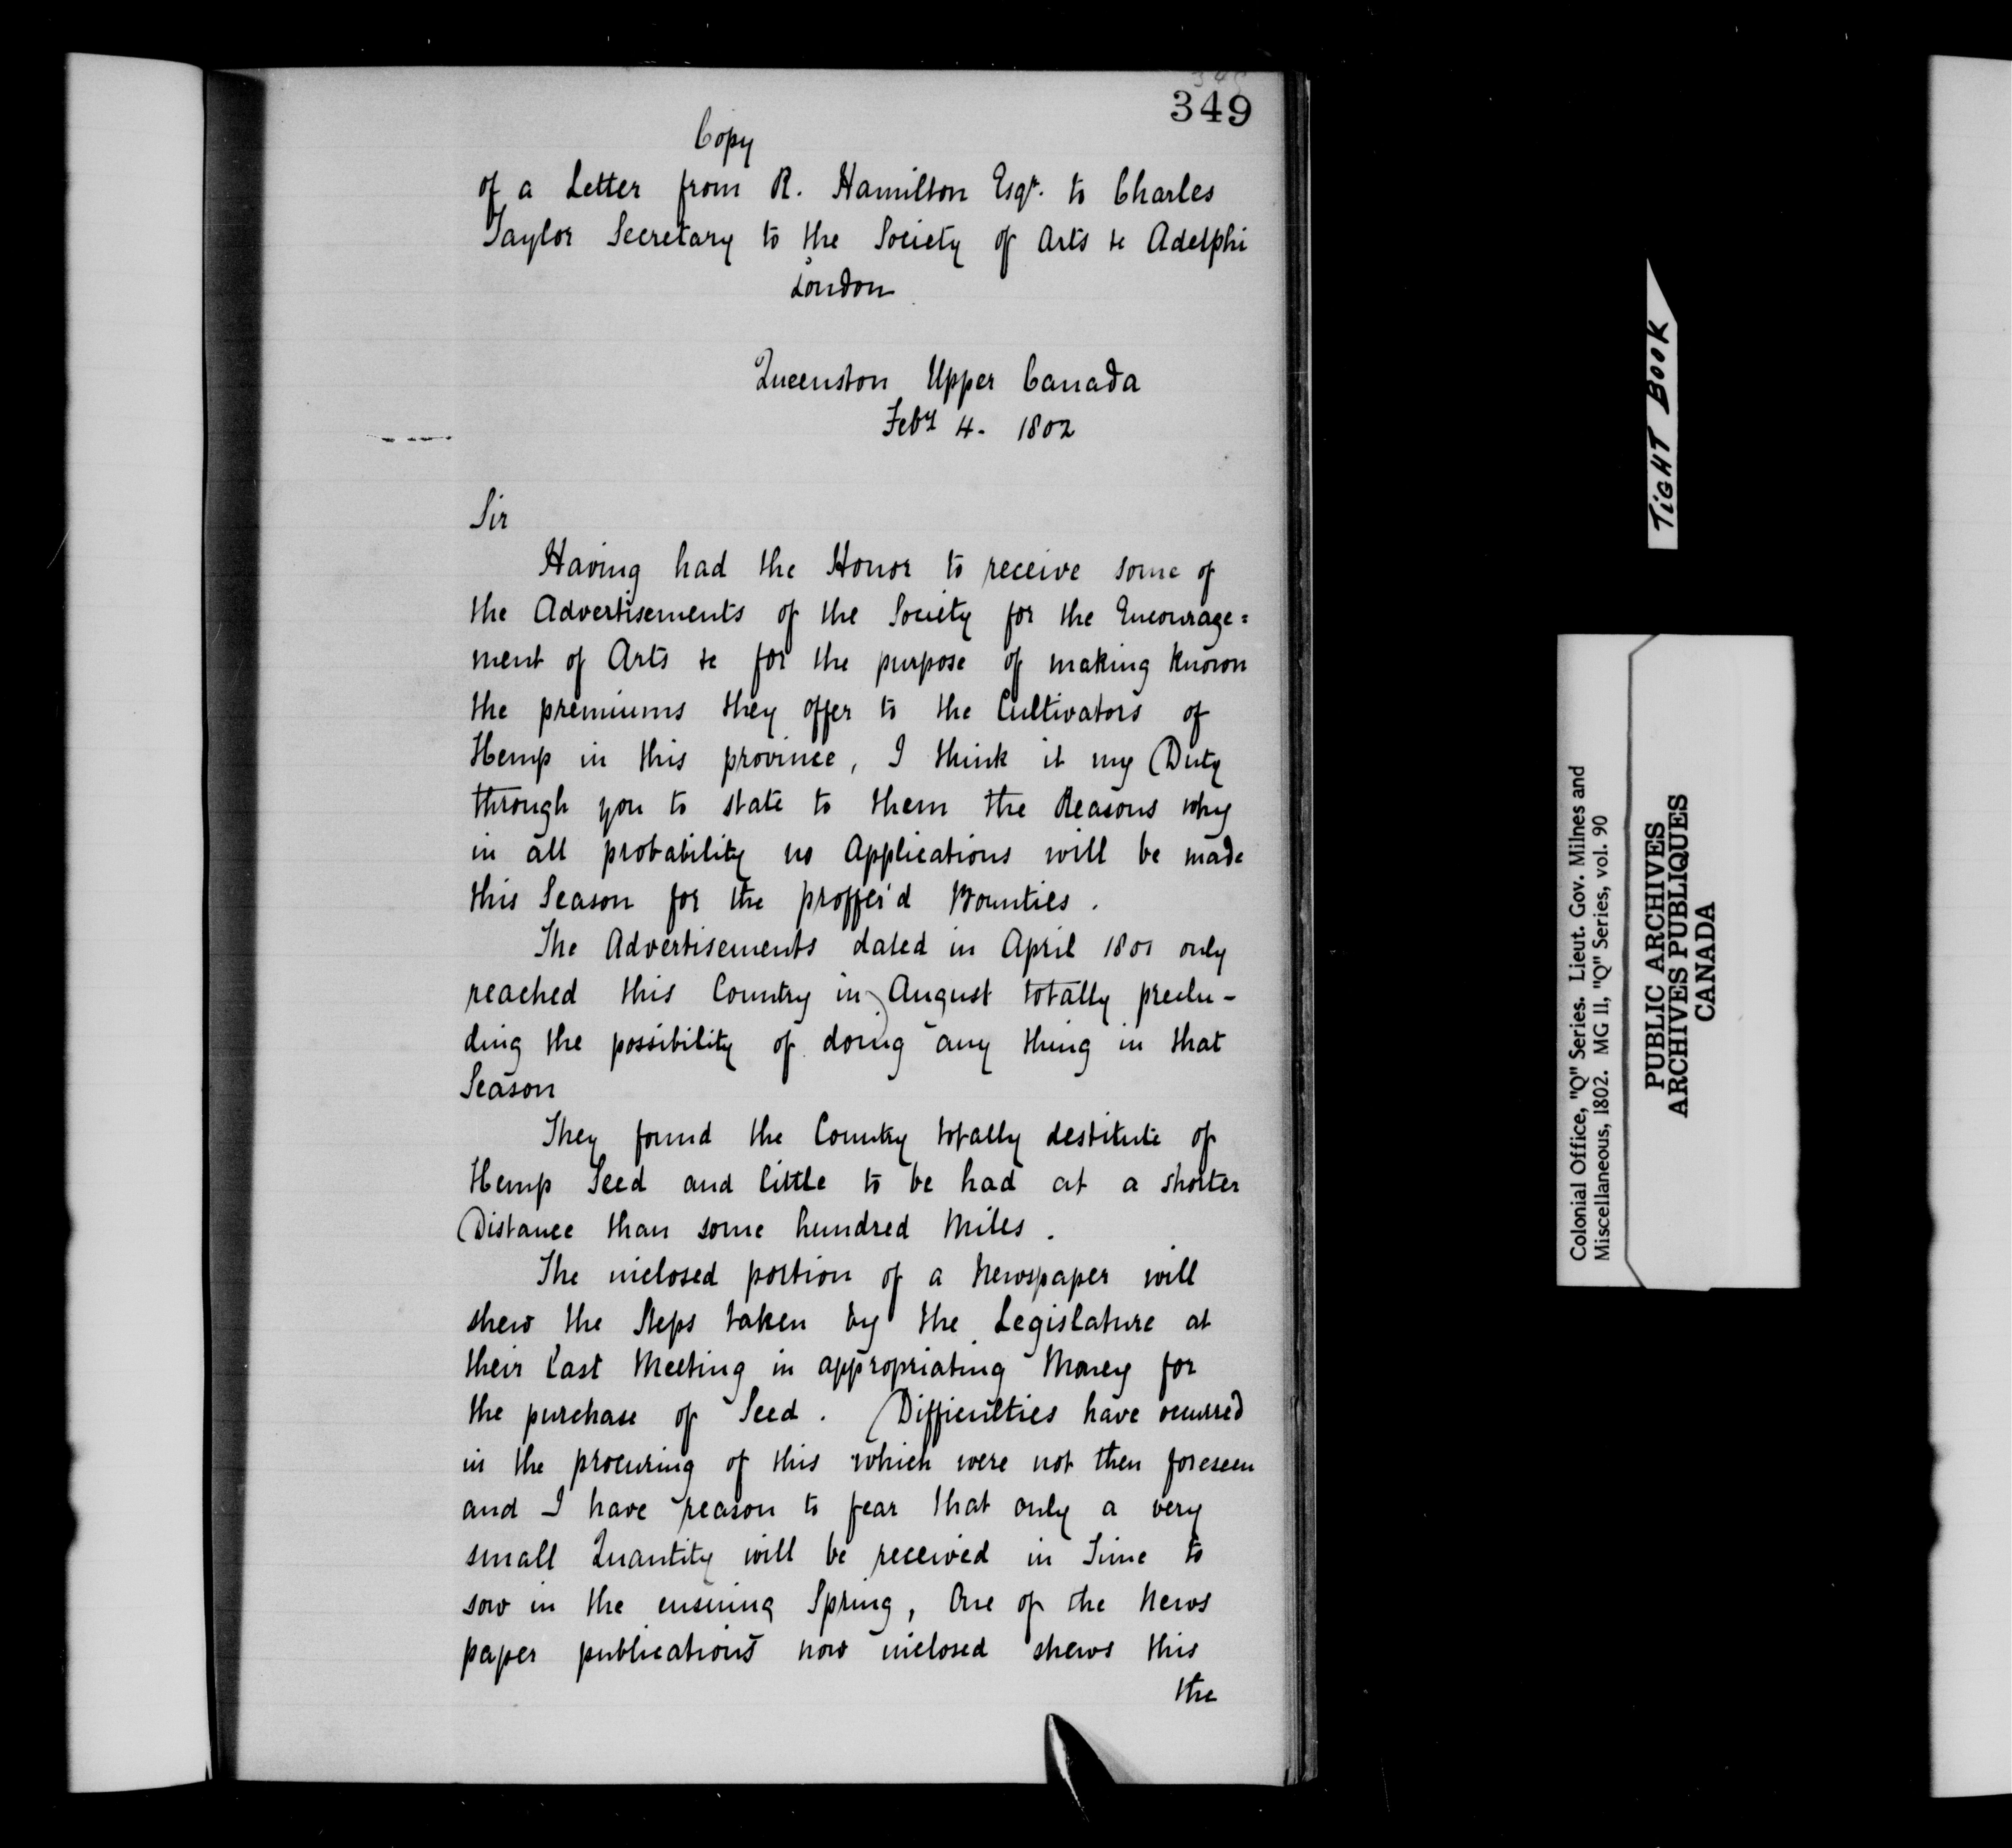 349
Copy
of a Letter from R. Hamilton Esqr. to Charles
Taylor Secretary to the Society of Arts &c Adelphi
London
Queenston Upper Canada
Feby 4. 1802
Sir
Having had the Honor to receive some of
the Advertisements of the Society for the Encourage=
ment of Arts &c for the purpose of making known
the premiums they offer to the Cultivators of
Hemp in this province, I think it my Duty
through you to state to them the Reasons why
in all probability no Applications will be made
this Season for the proffer'd Bounties.
The Advertisements dated in April 1801 only
reached this Country in August totally preclu-
ding the possibility of doing any thing in that
Season
They found the Country totally destitute of
Hemp Seed and little to be had at a shorter
Distance than some hundred Miles.
The inclosed portion of a Newspaper will
shew the Steps taken by the Legislature at
their last Meeting in appropriating Money for
the purchase of Seed. Difficulties have occurred
in the procuring of this which were not then foreseen
and I have reason to fear that only a very
small Quantity will be received in Time to
sow in the ensuing Spring, One of the News
paper publications now inclosed shews this
the
TIGHT BOOK
Colonial Office, "Q" Series. Lieut. Gov. Milnes and
Miscellaneous, 1802. MG 11, "Q" Series, vol. 90
PUBLIC ARCHIVES
ARCHIVES PUBLIQUES
CANADA